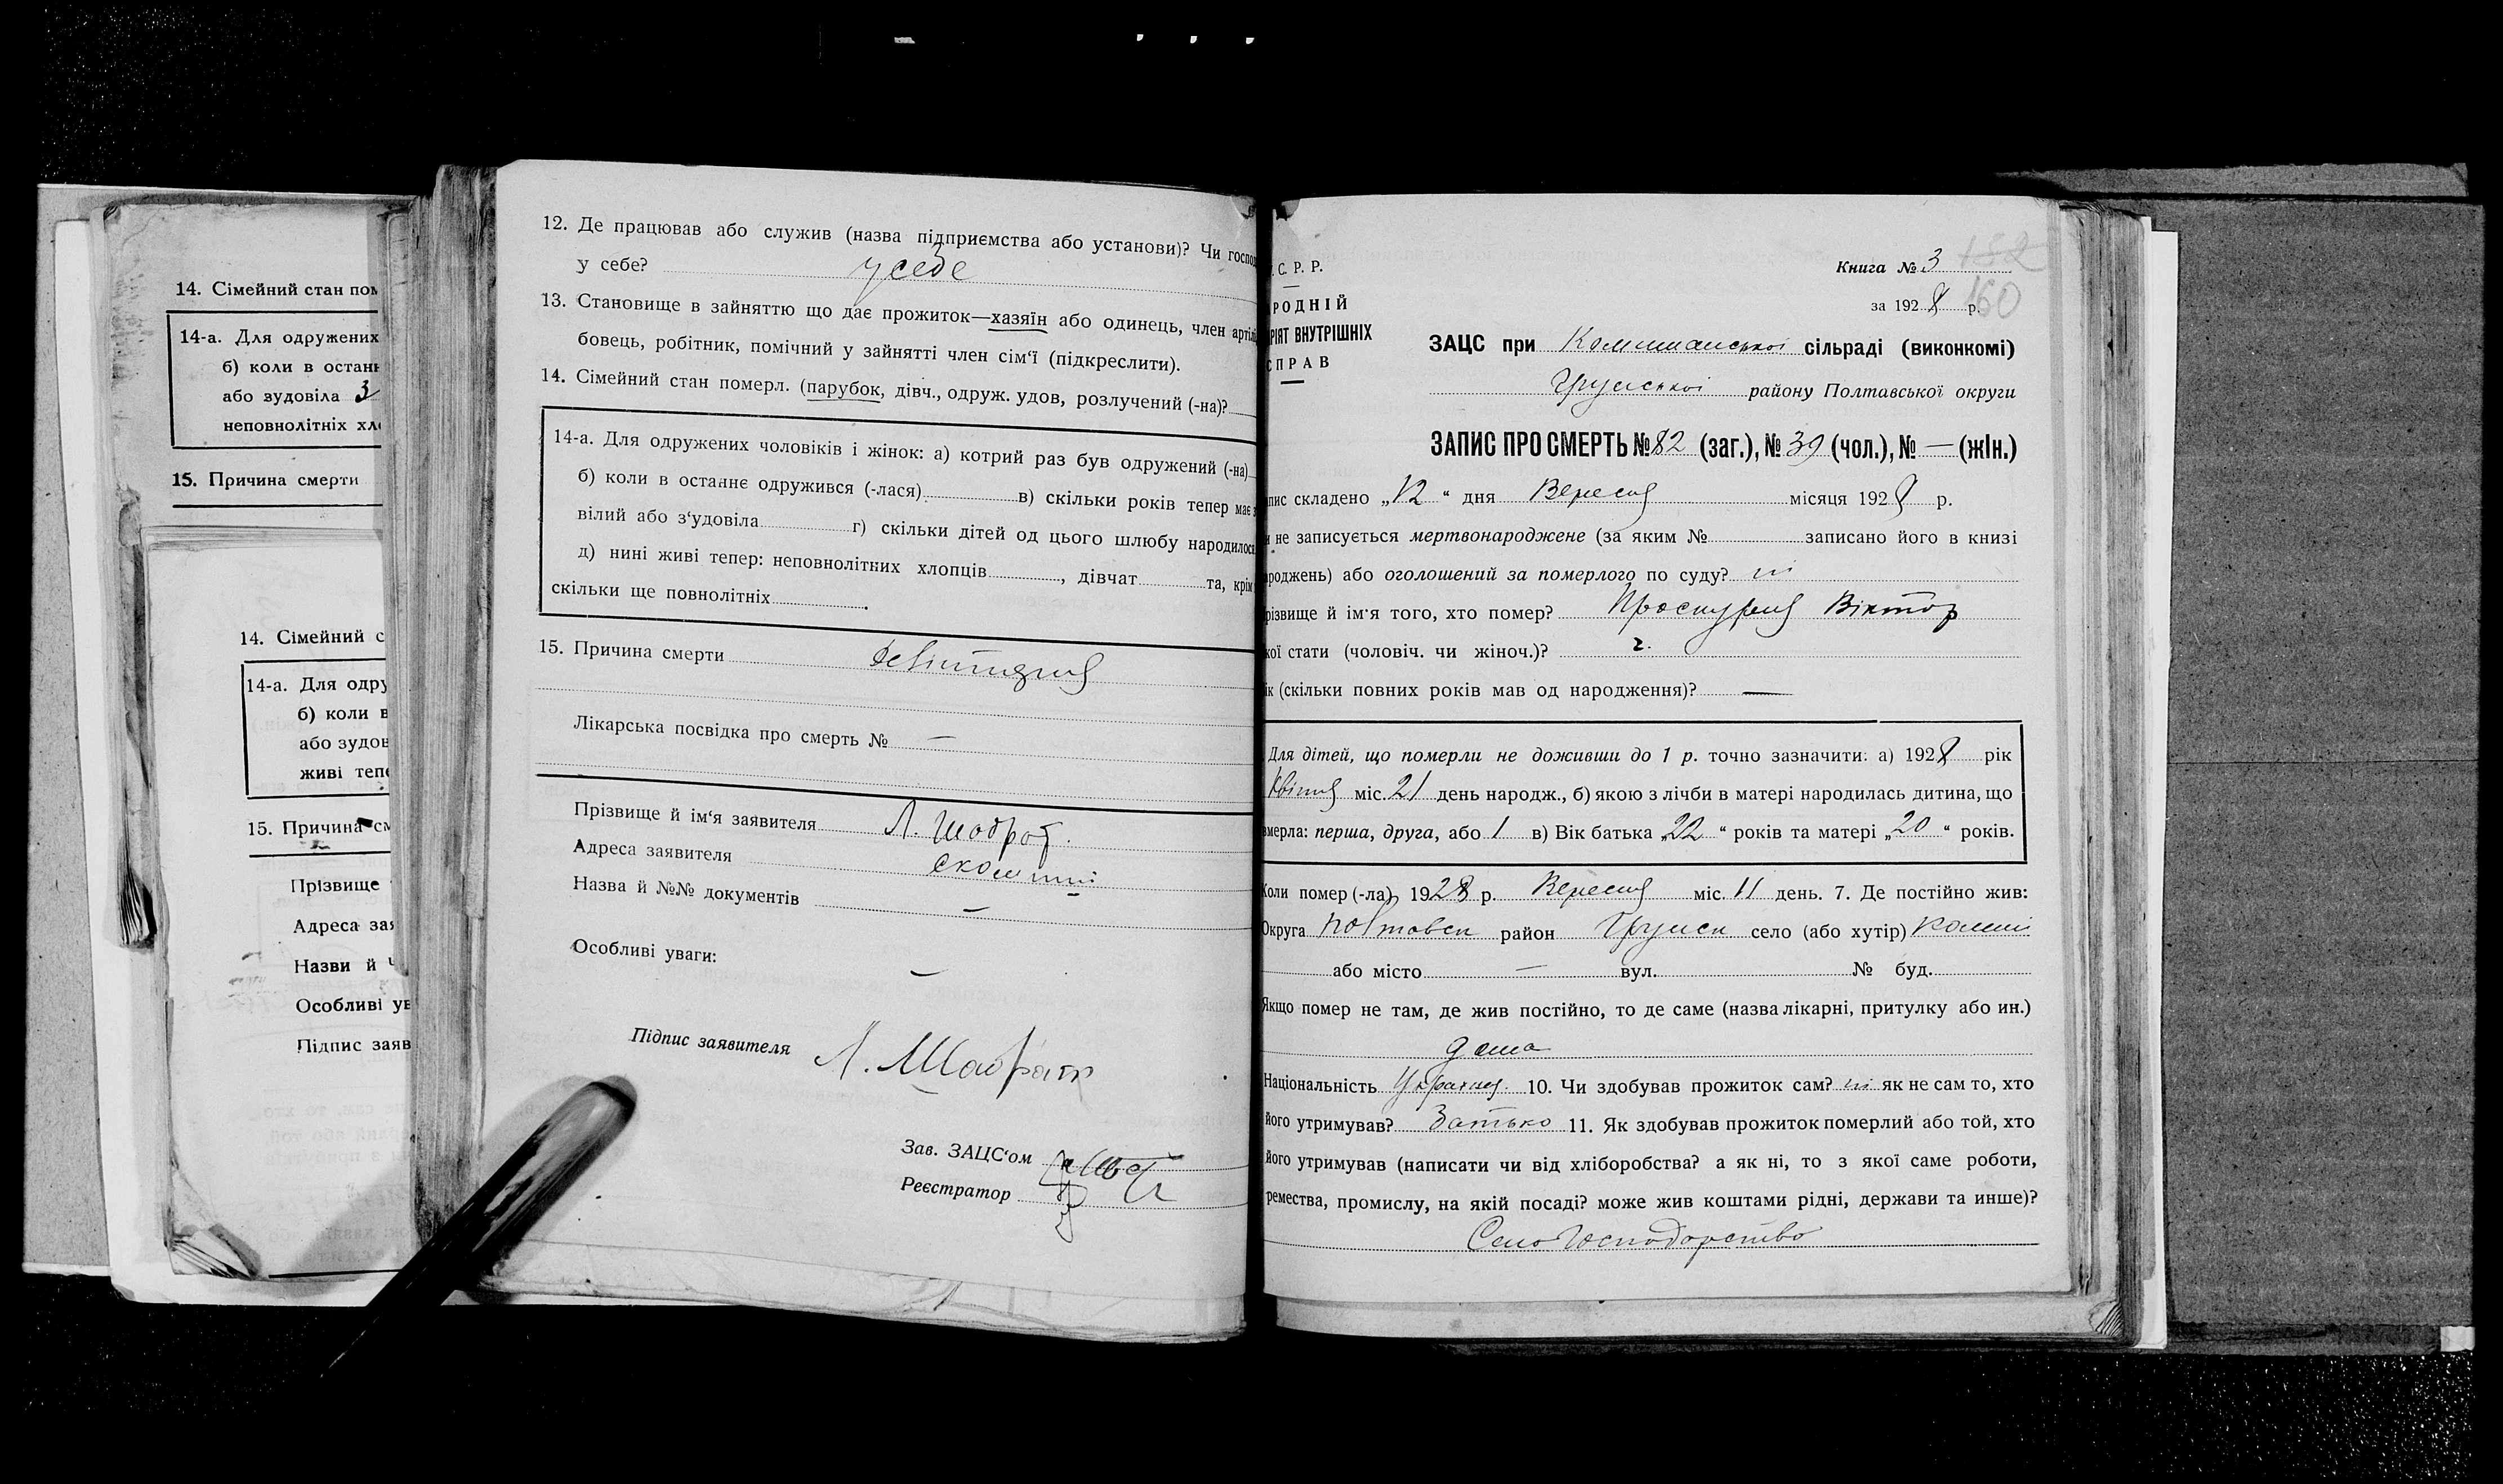 14. Сімейний стан пом
14-а. Для одружених
б) коли в остан
або зудовіла З
неповнолітніх хл
15. Причина смерти
14. Сімейний с
14-а. Для одру
б) коли в
або зудов
живі тепе
15. Причина см
Прізвище
Адреса зая
Назви й
Особливі ув
Підпис заяв
12. Де працював або служив (назва підприємства або установи)? Чи господ
у себе? у себе
13. Становище в зайняттю що дає прожиток—хазяїн або одинець, член артілі
бовець, робітник, помічний у зайнятті член сім'ї (підкреслити).
14. Сімейний стан померл. (парубок, дівч., одруж. удов, розлучений (-на)?
14-а. Для одружених чоловіків і жінок: а) котрий раз був одружений (-на)
б) коли в останнє одружився (-лася) в) скільки років тепер має з
вілий або з'удовіла г) скільки дітей од цього шлюбу народилося
д) нині живі тепер: неповнолітних хлопців , дівчат та, крім
скільки ще повнолітніх .
15. Причина смерти
Лікарська посвідка про смерть № —
Прізвище й ім'я заявителя Л. Шаброт.
Адреса заявителя
Назва й №№ документів —
Особливі уваги:
—
Підпис заявителя Л. Шабрат
Зав. ЗАЦС'ом
Реєстратор
. С. Р. Р.
РОДНІЙ
РІЯТ ВНУТРІШНІХ
СПРАВ
Книга № 3 182
за 1928 р. 160
ЗАЦС при Комишанської сільраді (виконкомі)
Грунської району Полтавської округи
ЗАПИС ПРО СМЕРТЬ № 82 (заг.), № 39 (чол.), № — (жін.)
пис складено „12“ дня Вересня місяця 1928 р.
и не записується мертвонароджене (за яким № записано його в книзі
роджень) або оголошений за померлого по суду? ні
різвище й ім'я того, хто помер? Проскурня Віктор
кої стати (чоловіч. чи жіноч.)? ч.
ік (скільки повних років мав од народження)? —
Для дітей, що померли не доживши до 1 р. точно зазначити: а) 1928 рік
Квітня міс. 21 день народж., б) якою з лічби в матері народилась дитина, що
вмерла: перша, друга, або 1 в) Вік батька „22“ років та матері „20“ років.
Коли помер (-ла) 1928 р. Вересня міс. 11 день. 7. Де постійно жив:
Округа Полтавськ район Грунськ село (або хутір) Комиші
або місто — вул. № буд.
Якщо помер не там, де жив постійно, то де саме (назва лікарні, притулку або ин.)
дома
Національність Україн. 10. Чи здобував прожиток сам? ні як не сам то, хто
його утримував? Батько 11. Як здобував прожиток померлий або той, хто
його утримував (написати чи від хліборобства? а як ні, то з якої саме роботи,
ремества, промислу, на якій посаді? може жив коштами рідні, держави та инше)?
Сель Господарство